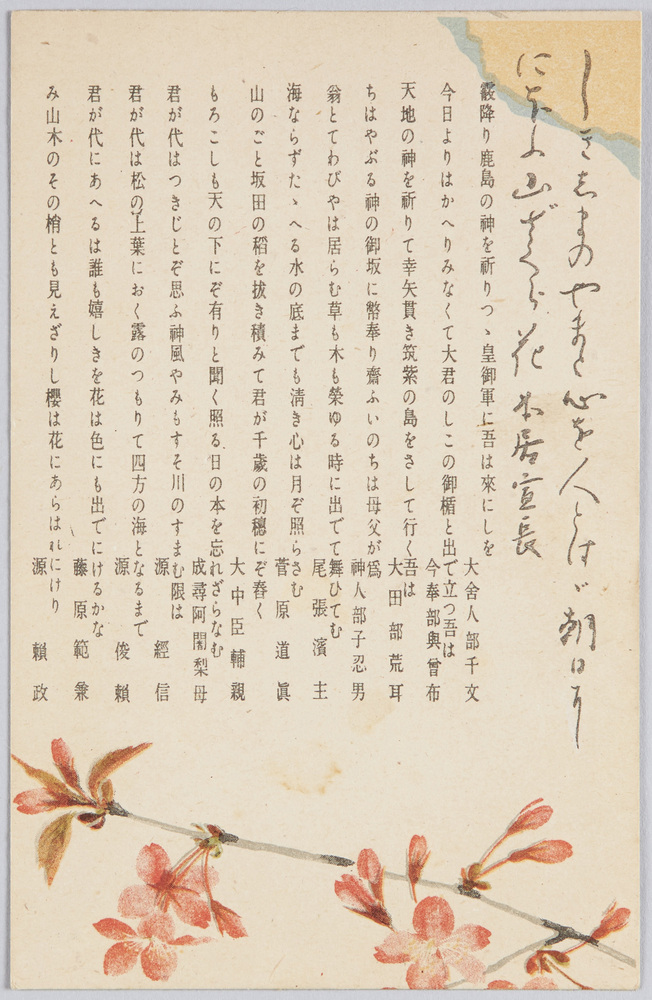 しきしまのやまと心を人とはゞ朝日に
にほふ山ざくら花 本居宣長
霰降り鹿島の神を祈りつゝ皇御軍に吾は來にしを
大舍人部千文
今日よりはかへりみなくて大君のしこの御楯と出で立つ吾は
今奉部與曾布
天地の神を祈りて幸矢貫き筑紫の島をさして行く吾は
大田部荒耳
ちはやぶる神の御坂に幣奉り齋ふいのちは母父が爲
神人部子忍男
翁とてわびやは居らむ草も木も榮ゆる時に出でて舞ひてむ
尾張濱主
海ならずたゝへる水の底までも淸き心は月ぞ照らさむ
菅原道眞
山のごと坂田の稻を拔き積みて君が千歲の初穗にぞ舂く
大中臣輔親
もろこしも天の下にぞ有りと聞く照る日の本を忘れざらなむ
成尋阿闍梨母
君が代はつきじとぞ思ふ神風やみもすそ川のすまむ限は
源經信
君が代は松の上葉におく露のつもりて四方の海となるまで
源俊賴
君が代にあへるは誰も嬉しきを花は色にも出でにけるかな
藤原範兼
み山木のその梢とも見えざりし櫻は花にあらはれにけり
源賴政